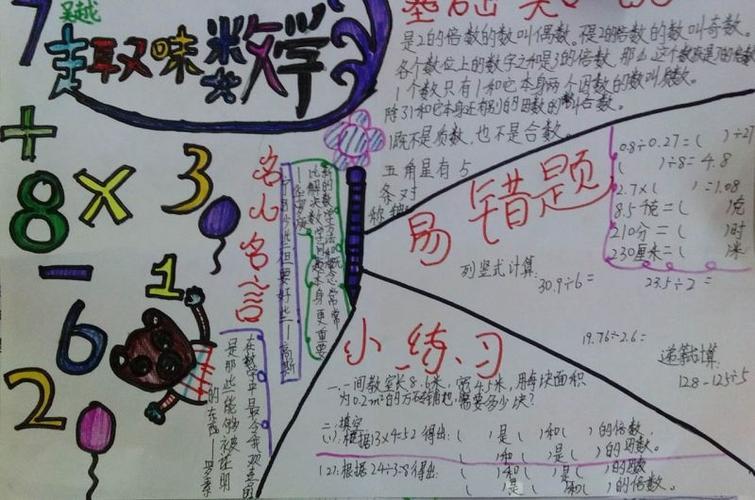 吴越
趣味数学
+
8×3
-
1
6
2
是2的倍数的数叫偶数。不是2的倍数的数叫奇数。
各个数位上的数字之和是3的倍数,那么这个数就是3的倍数
1个数只有1和它本身两个因数的数叫质数。
除了1和它本身还有别的因数的数叫合数。
1既不是质数,也不是合数。
五角星有5
条对
称轴
易错题
0.8÷0.27=( )÷27
( )÷8=4.8
2.7×( )=1.08
8.5千克=( )克
210分=( )时
230厘米=( )米
列竖式计算:
30.9÷6=
23.5÷2=
19.76÷2.6=
递等式计算:
128-125÷5
名人名言
新的数学方法和概念,常常
比解决数学问题本身更重要
宁可少些,但要好些——高斯
在数学中最令我欢喜的
是那些能够被证明
的东西——罗素
小练习
一、一间教室长8.6米,宽4.5米,用每块面积
为0.2m²的方砖铺地,需要多少块?
二、填空
(1).根据13×4=52得出:( )是( )和( )的倍数,
( )和( )是( )的因数。
(2).根据24÷3=8得出:( )和( )是( )的因数
( )是( )和( )的倍数。